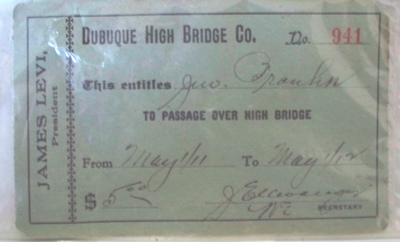 DUBUQUE HIGH BRIDGE CO. No. 941
JAMES LEVI,
President
This entitles Jno. Franklin
TO PASSAGE OVER HIGH BRIDGE
From May 1/11 To May 1/12
$ 5.00
SECRETARY